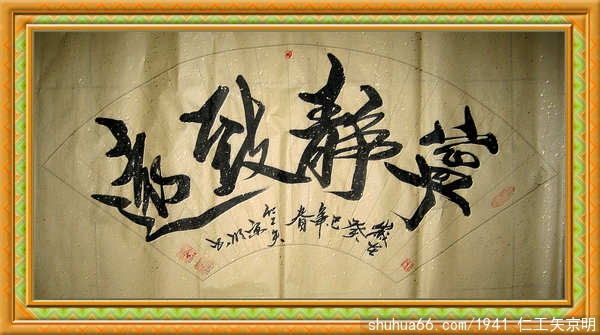 寧静致遠
歲在癸巳年春
shuhua66.com/1941 仁工矢京明